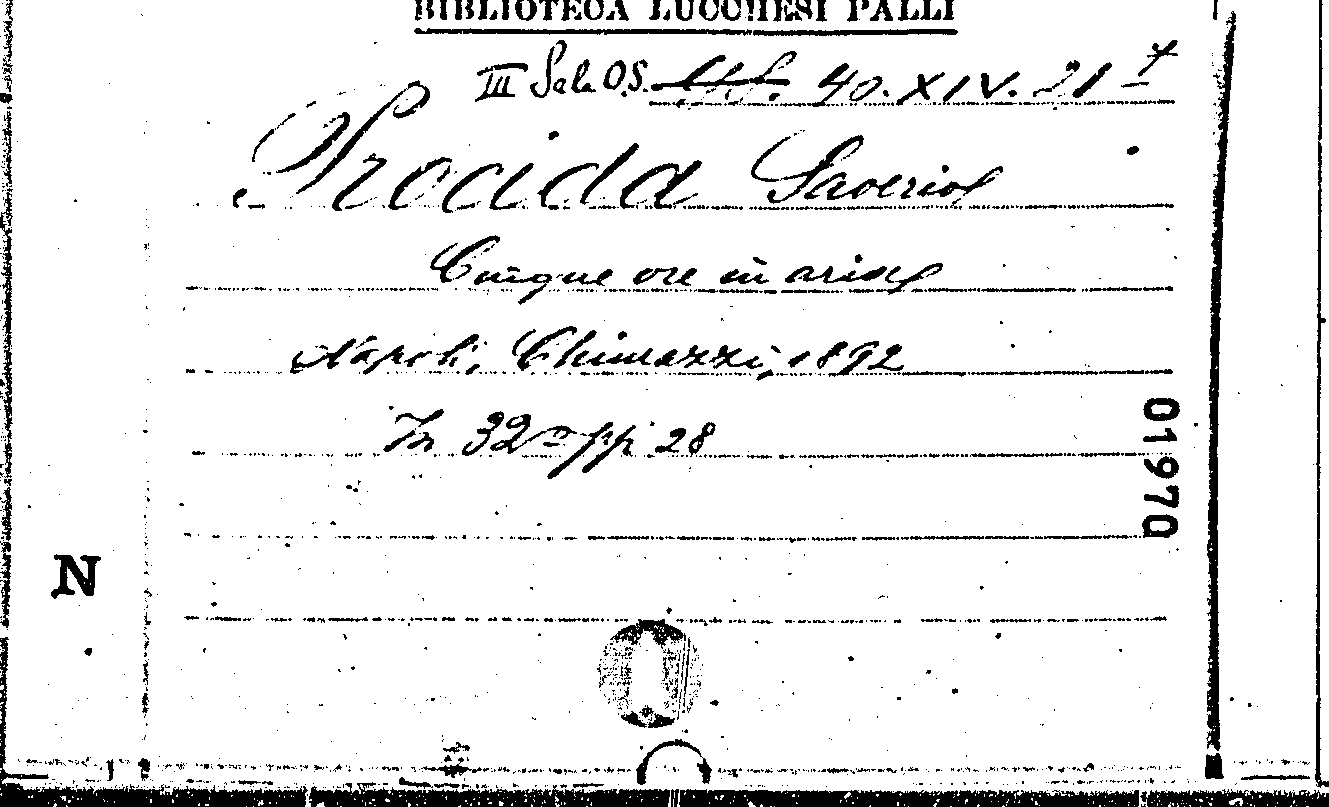 BIBLIOTECA LUCCHESI PALLI
III Sala O.S. 40. XIV. 21
Procida Saverio
Cinque ore in aria
Napoli, Chiurazzi, 1892
In 32° pp 28
01970
N